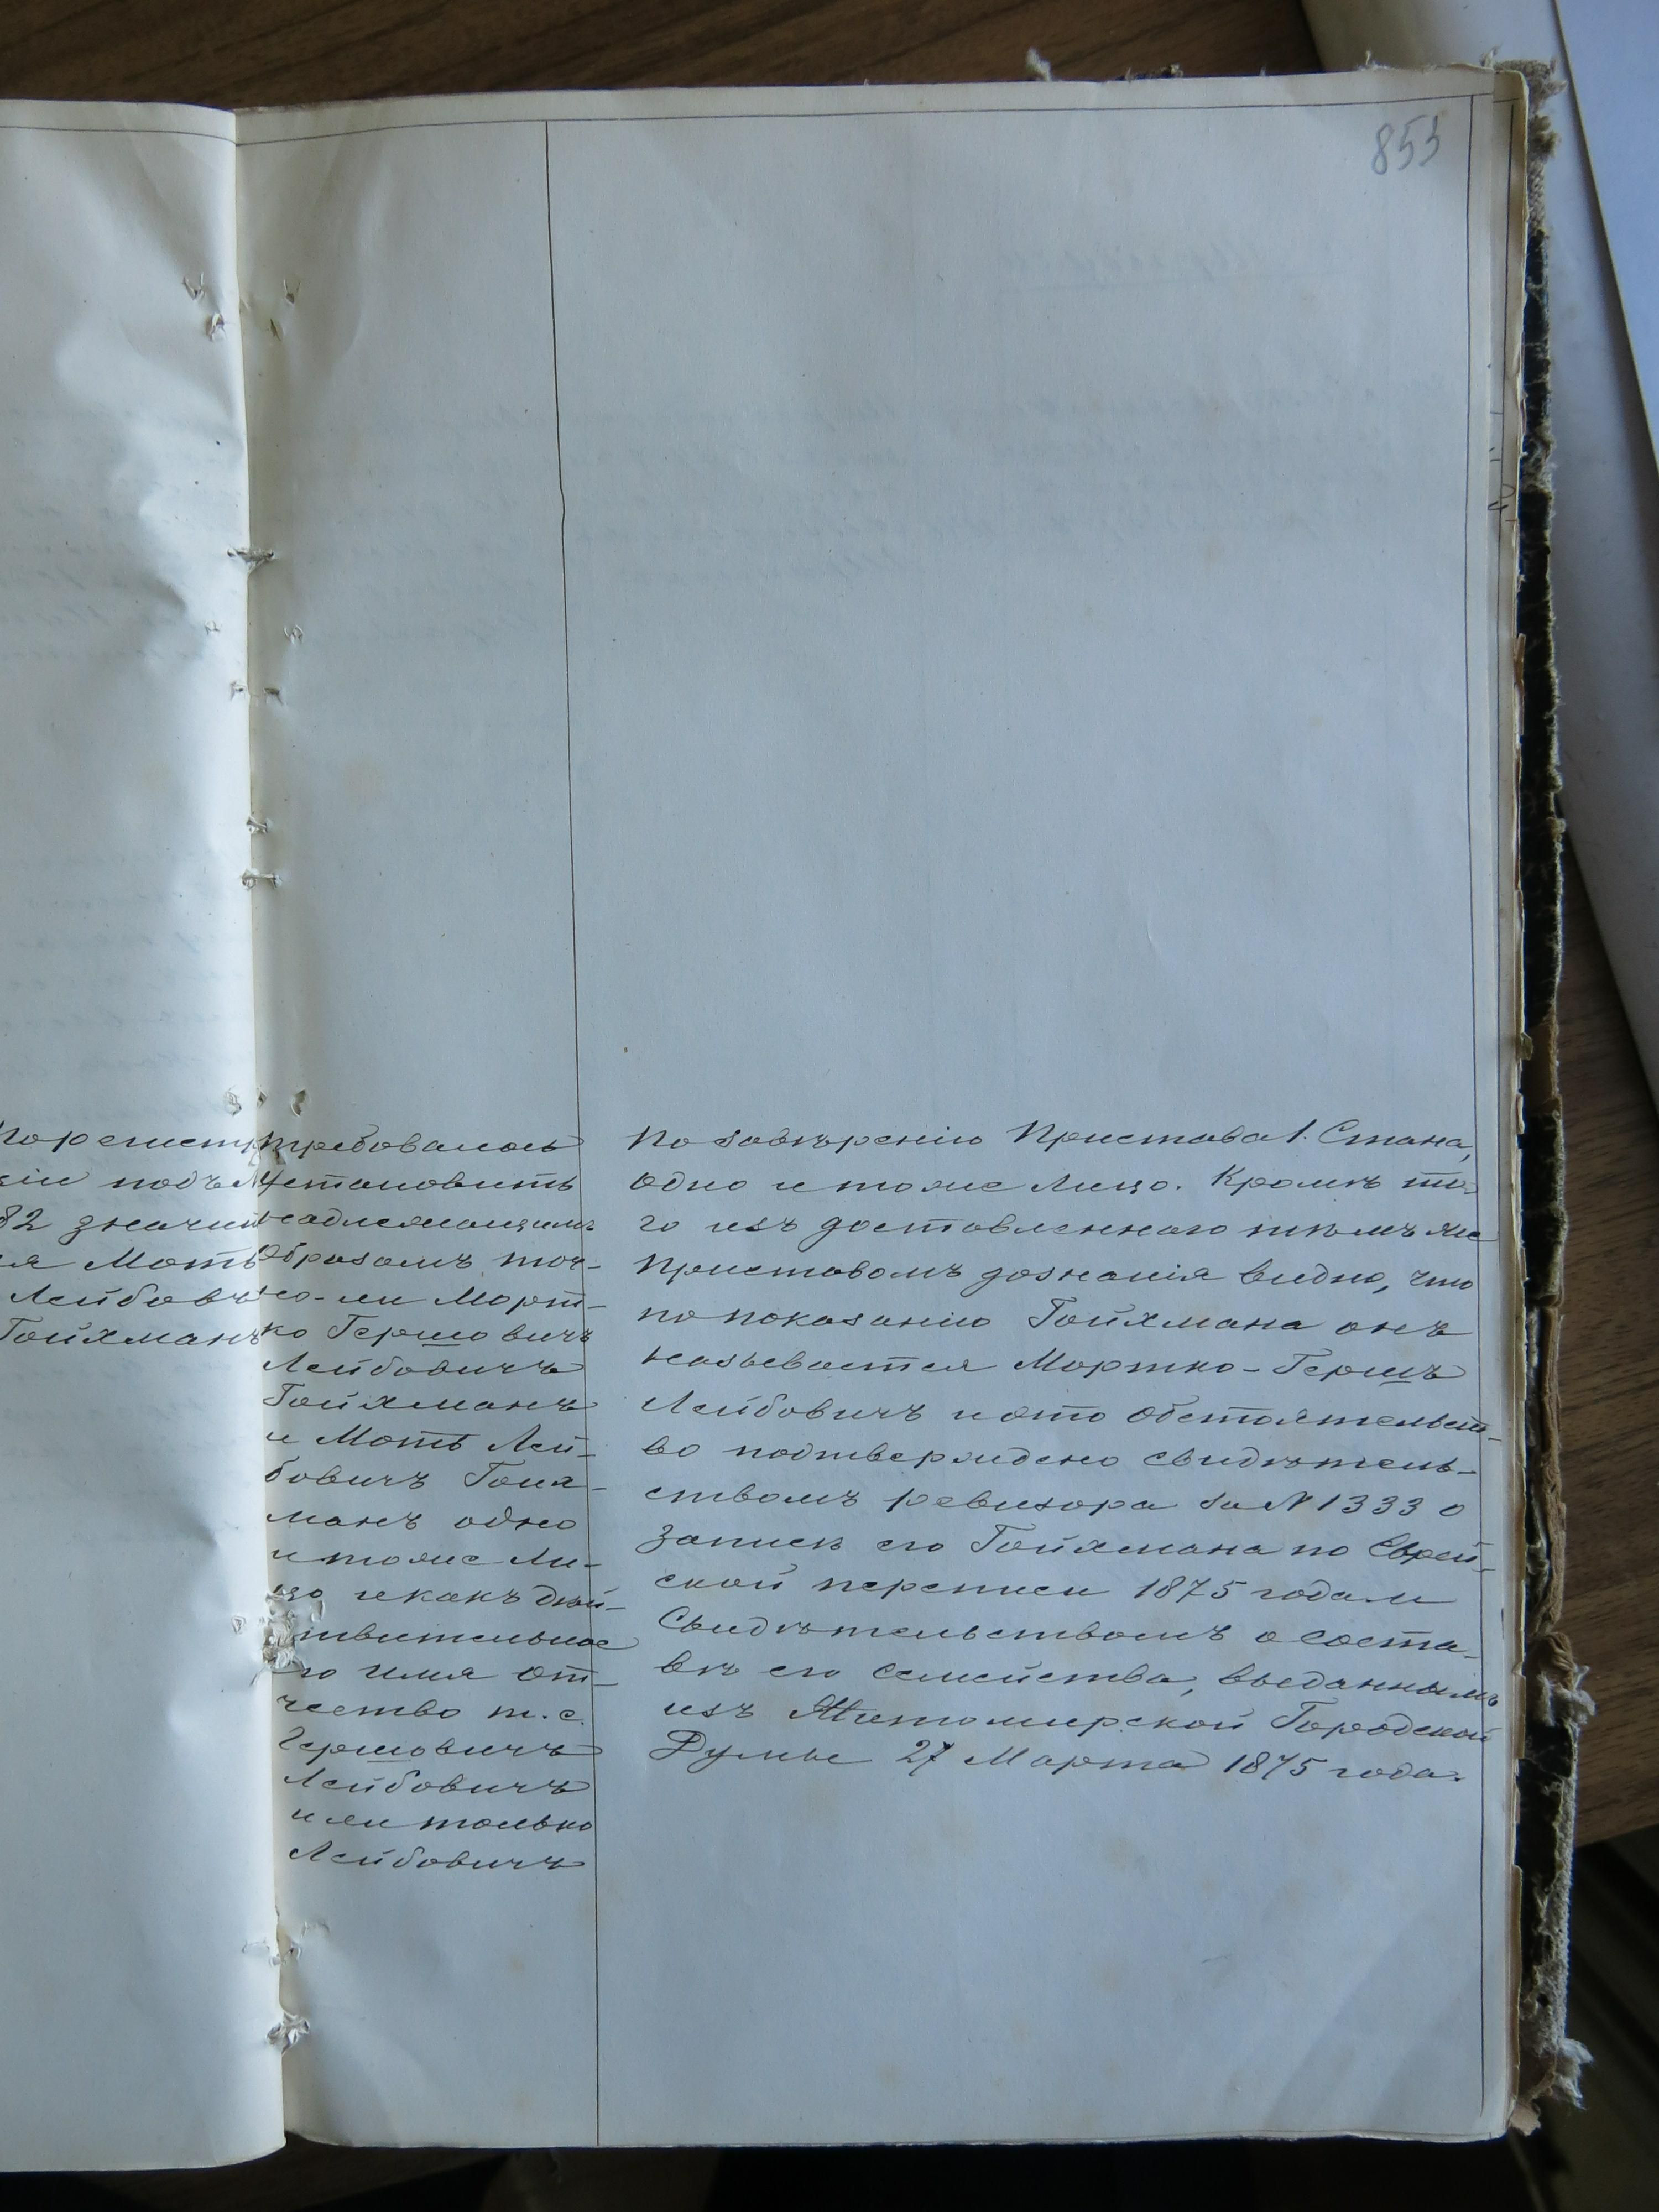 853
По регист
зіи подъ №
82 значит
ся Моть
Лейбовъ
Гойхманъ
Требовалось
установить
надлежащимъ
образомъ точ-
но-ли Морт-
ко Гершовичъ
Лейбовичъ
Гойхманъ
и Моть Лей-
бовичъ Гойх-
манъ одно
и тоже ли-
цо и какъ дѣй-
ствительное
го имя от-
чество т.е.
Гершовичъ
Лейбовичъ
или только
Лейбовичъ
По завѣренію Пристава 1. Стана,
одно и тоже лицо. Кромѣ то-
го изъ доставленнаго тѣмъ же
Приставомъ дознанія видно, что
по показанію Гойхмана онъ
называется Мортко-Гершъ
Лейбовичъ и это обстоятельст-
во подтверждено свидѣтель-
ствомъ ревизора за № 1333 о
записи его Гойхмана по Еврей-
ской переписи 1875 года и
Свидѣтельствомъ о соста-
вѣ его семейства, выданнымъ
изъ Житомирской Городской
Думы 27 Марта 1875 года.